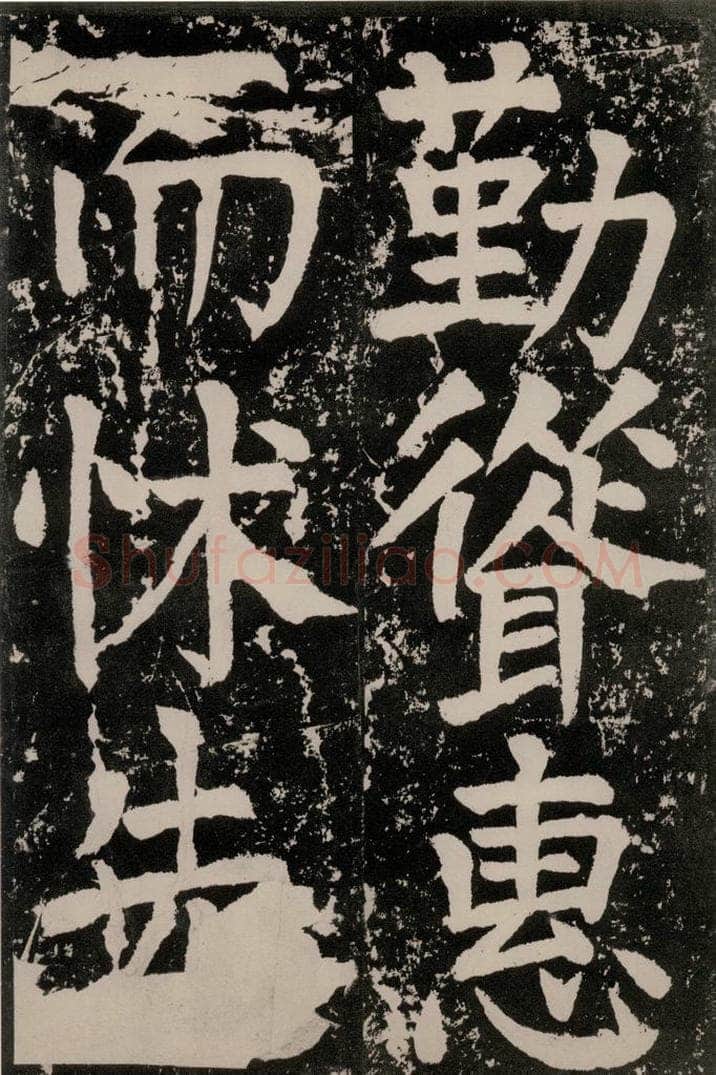 勤聳惠
而怵
Shufaziliao.COM